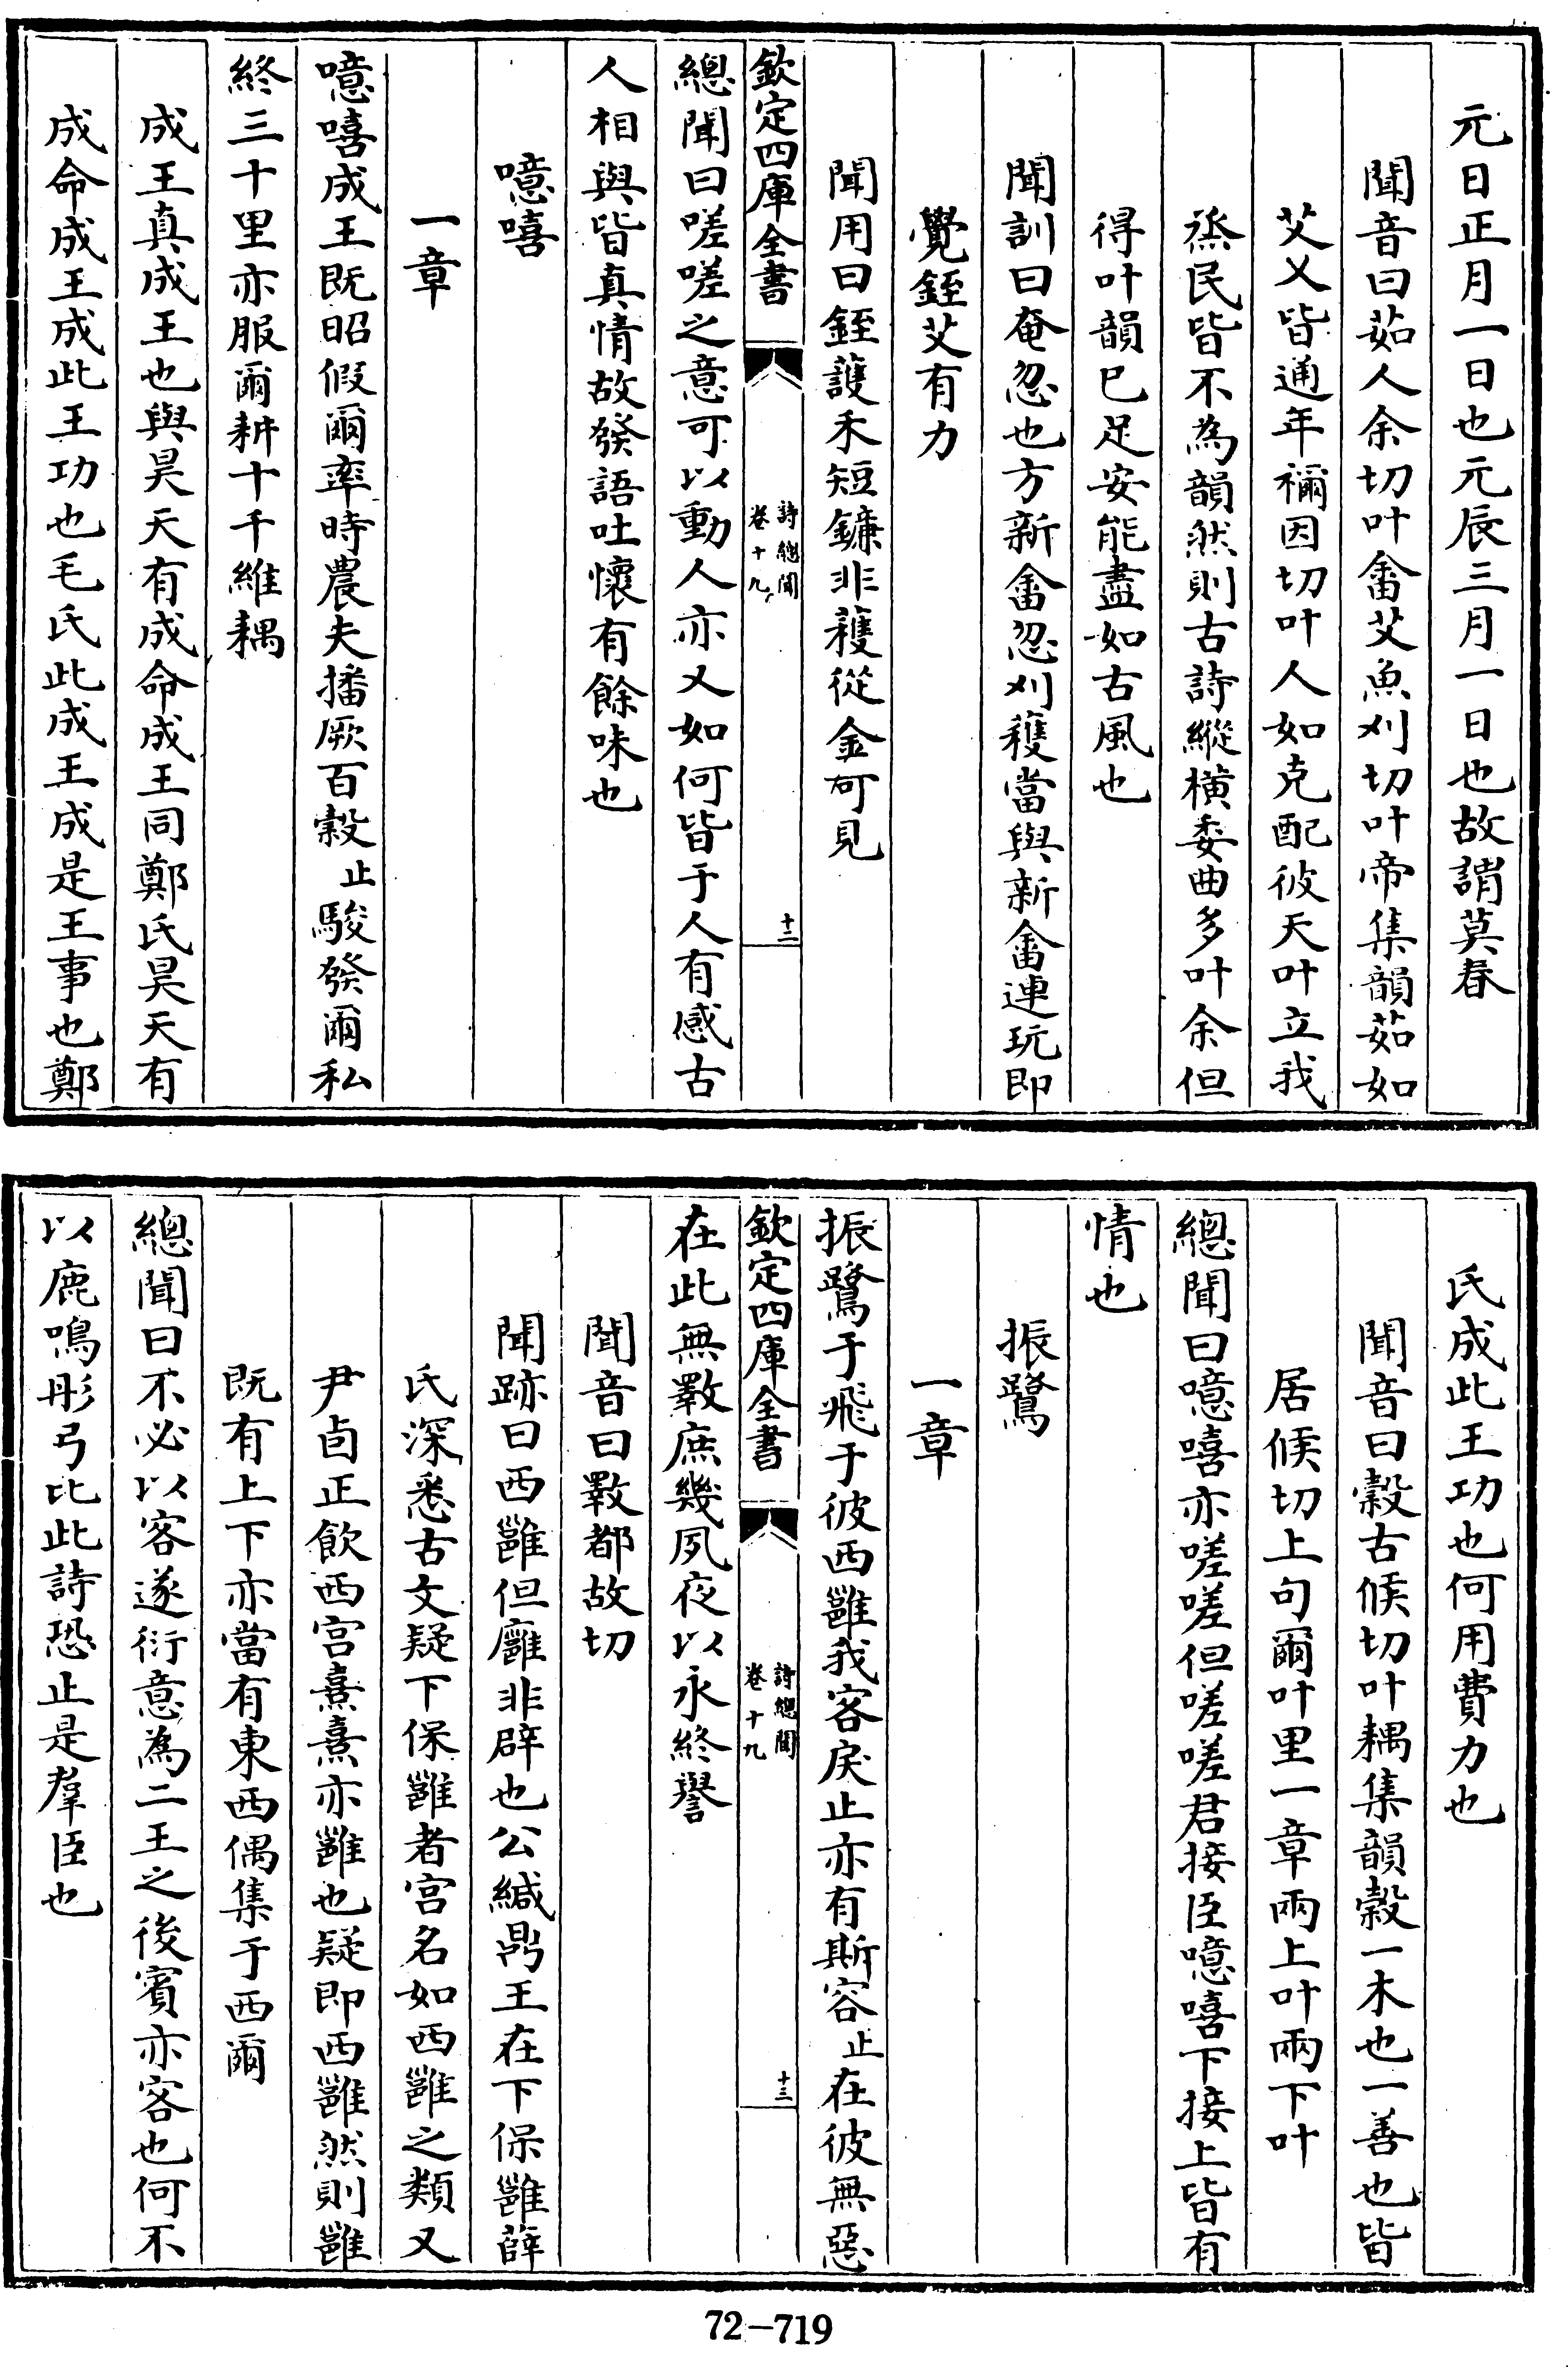 元日正月一日也元辰三月一日也故謂莫春
聞音曰茹人余切叶畬艾魚刈切叶帝集韻茹如
艾乂皆通年禰因切叶人如克配彼天叶立我
烝民皆不為韻然則古詩縱橫委曲多叶余但
得叶韻已足安能盡如古風也
聞訓曰奄忽也方新畬忽刈穫當與新畬連玩即
覺銍艾有力
聞用曰銍䕶禾短鐮非穫從金可見
欽定四庫全書
詩總聞
卷十九
十二
總聞曰嗟嗟之意可以動人亦又如何皆于人有感古
人相與皆真情故發語吐懷有餘味也
噫嘻
一章
噫嘻成王既昭假爾率時農夫播厥百穀止駿發爾私
終三十里亦服爾耕十千維耦
成王真成王也與昊天有成命成王同鄭氏昊天有
成命成王成此王功也毛氏此成王成是王事也鄭
氏成此王功也何用費力也
聞音曰穀古候切叶耦集韻穀一木也一善也皆
居候切上句爾叶里一章兩上叶兩下叶
總聞曰噫嘻亦嗟嗟但嗟嗟君接臣噫嘻下接上皆有
情也
振鷺
一章
振鷺于飛于彼西雝我客戾止亦有斯容止在彼無惡
欽定四庫全書
詩總聞
卷十九
十三
在此無斁庶幾夙夜以永終譽
聞音曰斁都故切
聞跡曰西雝但廱非辟也公緘鼎王在下保雝薛
氏深悉古文疑下保雝者宫名如西雝之類又
尹卣正飲西宫熹熹亦雝也疑即西雝然則雝
既有上下亦當有東西偶集于西爾
總聞曰不必以客遂衍意為二王之後賓亦客也何不
以鹿鳴彤弓比此詩恐止是羣臣也
72-719